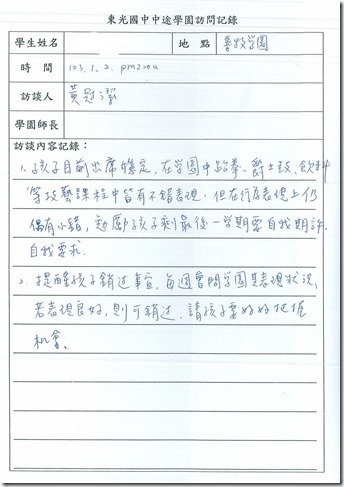 東光國中中途學園訪問記錄
學生姓名 地點 善牧学園
時間 103.1.2. pm2:00
訪談人 黃冠潔
學園師長
訪談內容記錄：
1. 孩子目前出席穩定，在学園中跆拳、爵士鼓、飲料
等技藝課程中皆有不錯表現，但在行為表現上仍
偶有小錯，勉勵孩子剩最後一學期要自我期許、
自我要求。
2. 提醒孩子銷过事宜，每週會問学園其表現狀況，
若表現良好，則可銷过，請孩子要好好把握
机會。